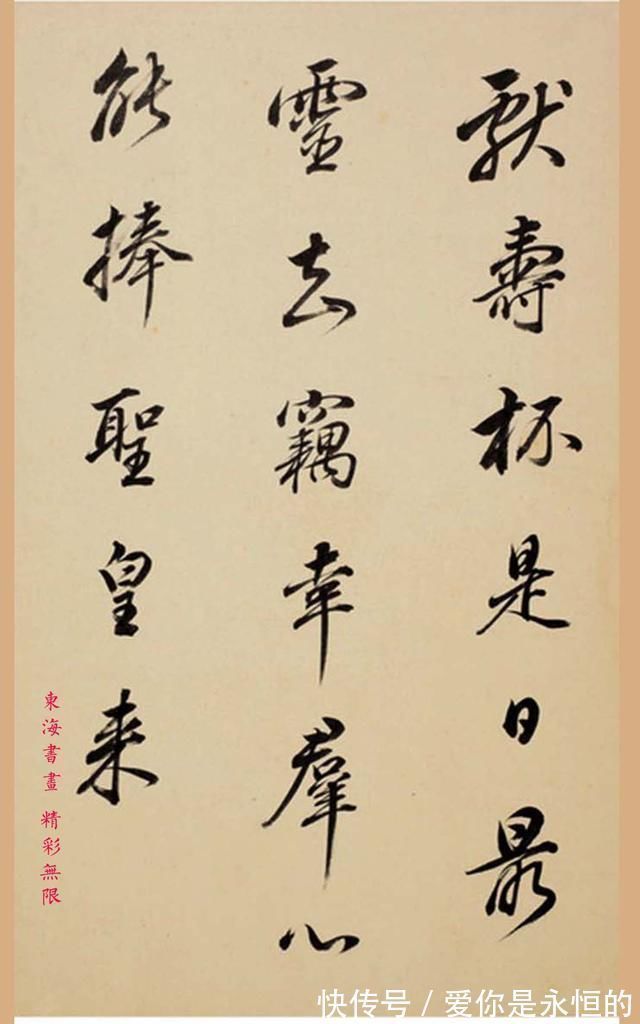 獻壽杯是日最
靈去竊幸羣心
能捧聖皇来
東海書畫 精彩無限
快传号 / 爱你是永恒的